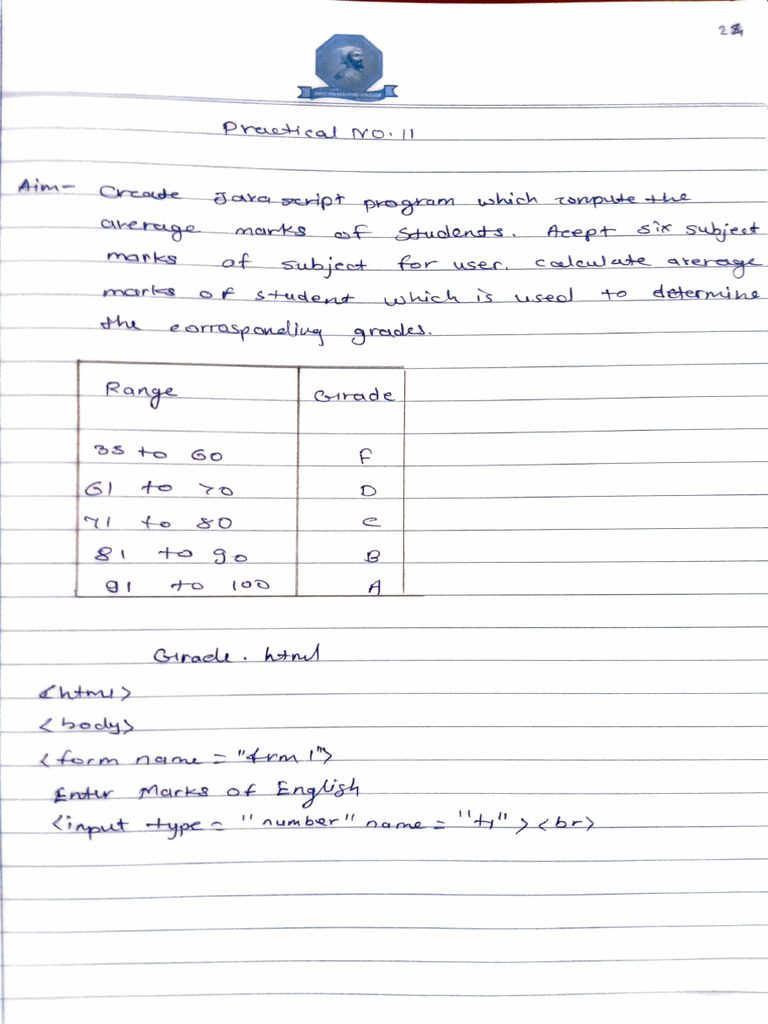 Practical No. 11
Aim- Create Java script program which compute the
average marks of Students. Acept six subject
marks of subject for user. calculate average
marks of student which is used to determine
the corrasponding grades.
Range Grade
35 to 60 F
61 to 70 D
71 to 80 C
81 to 90 B
91 to 100 A
Grade.html
<html>
<body>
<form name = "frm1">
Enter Marks of English
<input type = "number" name = "t1"><br>